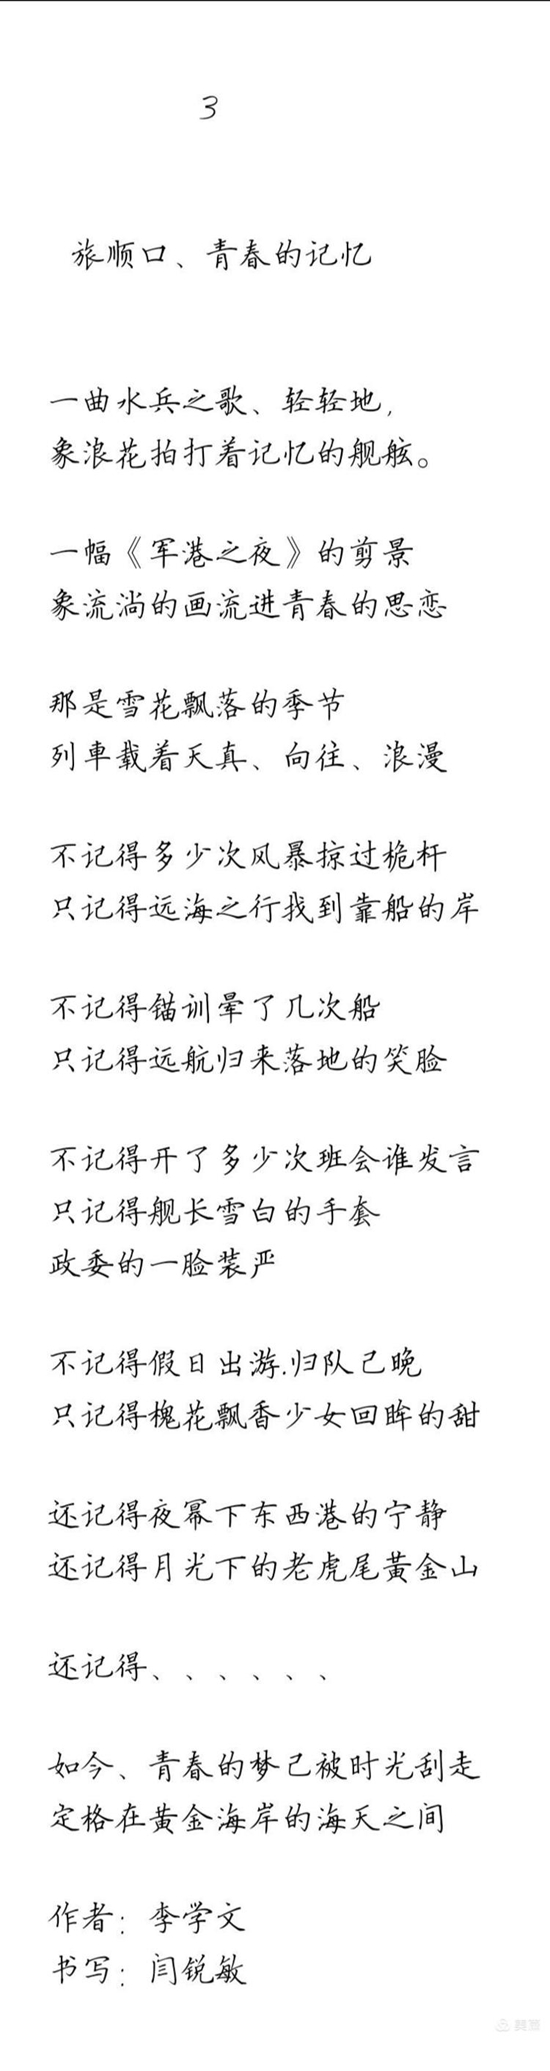 3
旅顺口、青春的记忆
一曲水兵之歌、轻轻地,
象浪花拍打着记忆的舰舷。
一幅《军港之夜》的剪景
象流淌的画流进青春的思恋
那是雪花飘落的季节
列車载着天真、向往、浪漫
不记得多少次风暴掠过桅杆
只记得远海之行找到靠船的岸
不记得锚训晕了几次船
只记得远航归来落地的笑脸
不记得开了多少次班会谁发言
只记得舰长雪白的手套
政委的一脸装严
不记得假日出游.归队己晚
只记得槐花飘香少女回眸的甜
还记得夜幂下东西港的宁静
还记得月光下的老虎尾黄金山
还记得、、、、、、
如今、青春的梦己被时光刮走
定格在黄金海岸的海天之间
作者：李学文
书写：闫锐敏
美篇